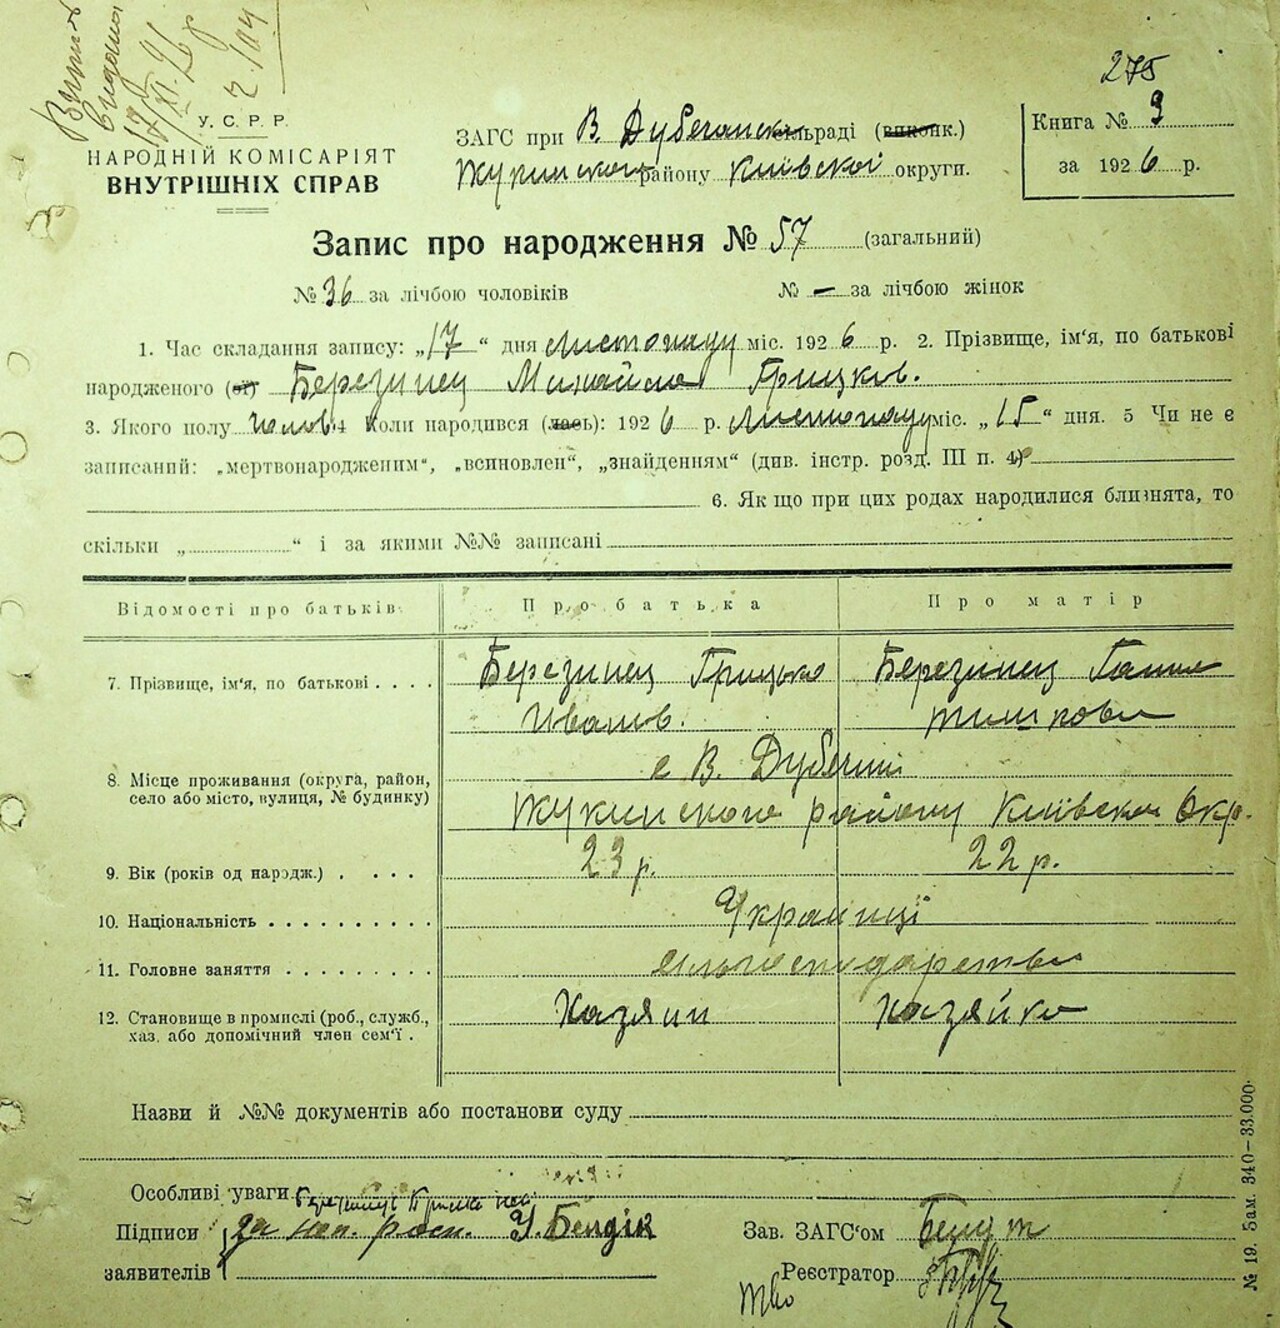 275
У. С. Р. Р.
НАРОДНІЙ КОМІСАРІЯТ
ВНУТРІШНІХ СПРАВ
ЗАГС при В. Дубечанскій сільраді (виконк.)
Жукинского району Київской округи.
Книга № 3
за 1926 р.
Запис про народження № 57 (загальний)
№ 36 за лічбою чоловіків № — за лічбою жінок
1. Час складання запису: „17“ дня листопаду міс. 1926 р. 2. Прізвище, ім‘я, по батькові
народженого (ої) Березинец Михайло Грицьков.
3. Якого полу чолов. 4 Коли народився (лась): 1926 р. Листопаду міс. „15“ дня. 5 Чи не є
записаний: „мертвонародженим“, „всиновлен“, „знайденням“ (див. інстр. розд. III п. 4)
6. Як що при цих родах народилися близнята, то
скільки „ “ і за якими №№ записані
Відомості про батьків. Про батька Про матір
7. Прізвище, ім‘я, по батькові . . . . Березинец Грицько Березинец Ганна
Иванов. Тимкова
8. Місце проживання (округа, район, с В. Дубечні
село або місто, вулиця, № будинку) Жукинского району Київской Окр.
9. Вік (років од народж.) . . . . 23 р. 22 р.
10. Національність . . . . . . . . . . Українці
11. Головне заняття . . . . . . . . .
12. Становище в промислі (роб., служб., Хазяин Хазяйка
хаз. або допомічний член сем‘ї .
Назви й №№ документів або постанови суду
Особливі уваги
Підписи за неп. росп. У. Бендік Зав. ЗАГС‘ом
заявителів Реєстратор
№ 19. Бам. 340—33.000.